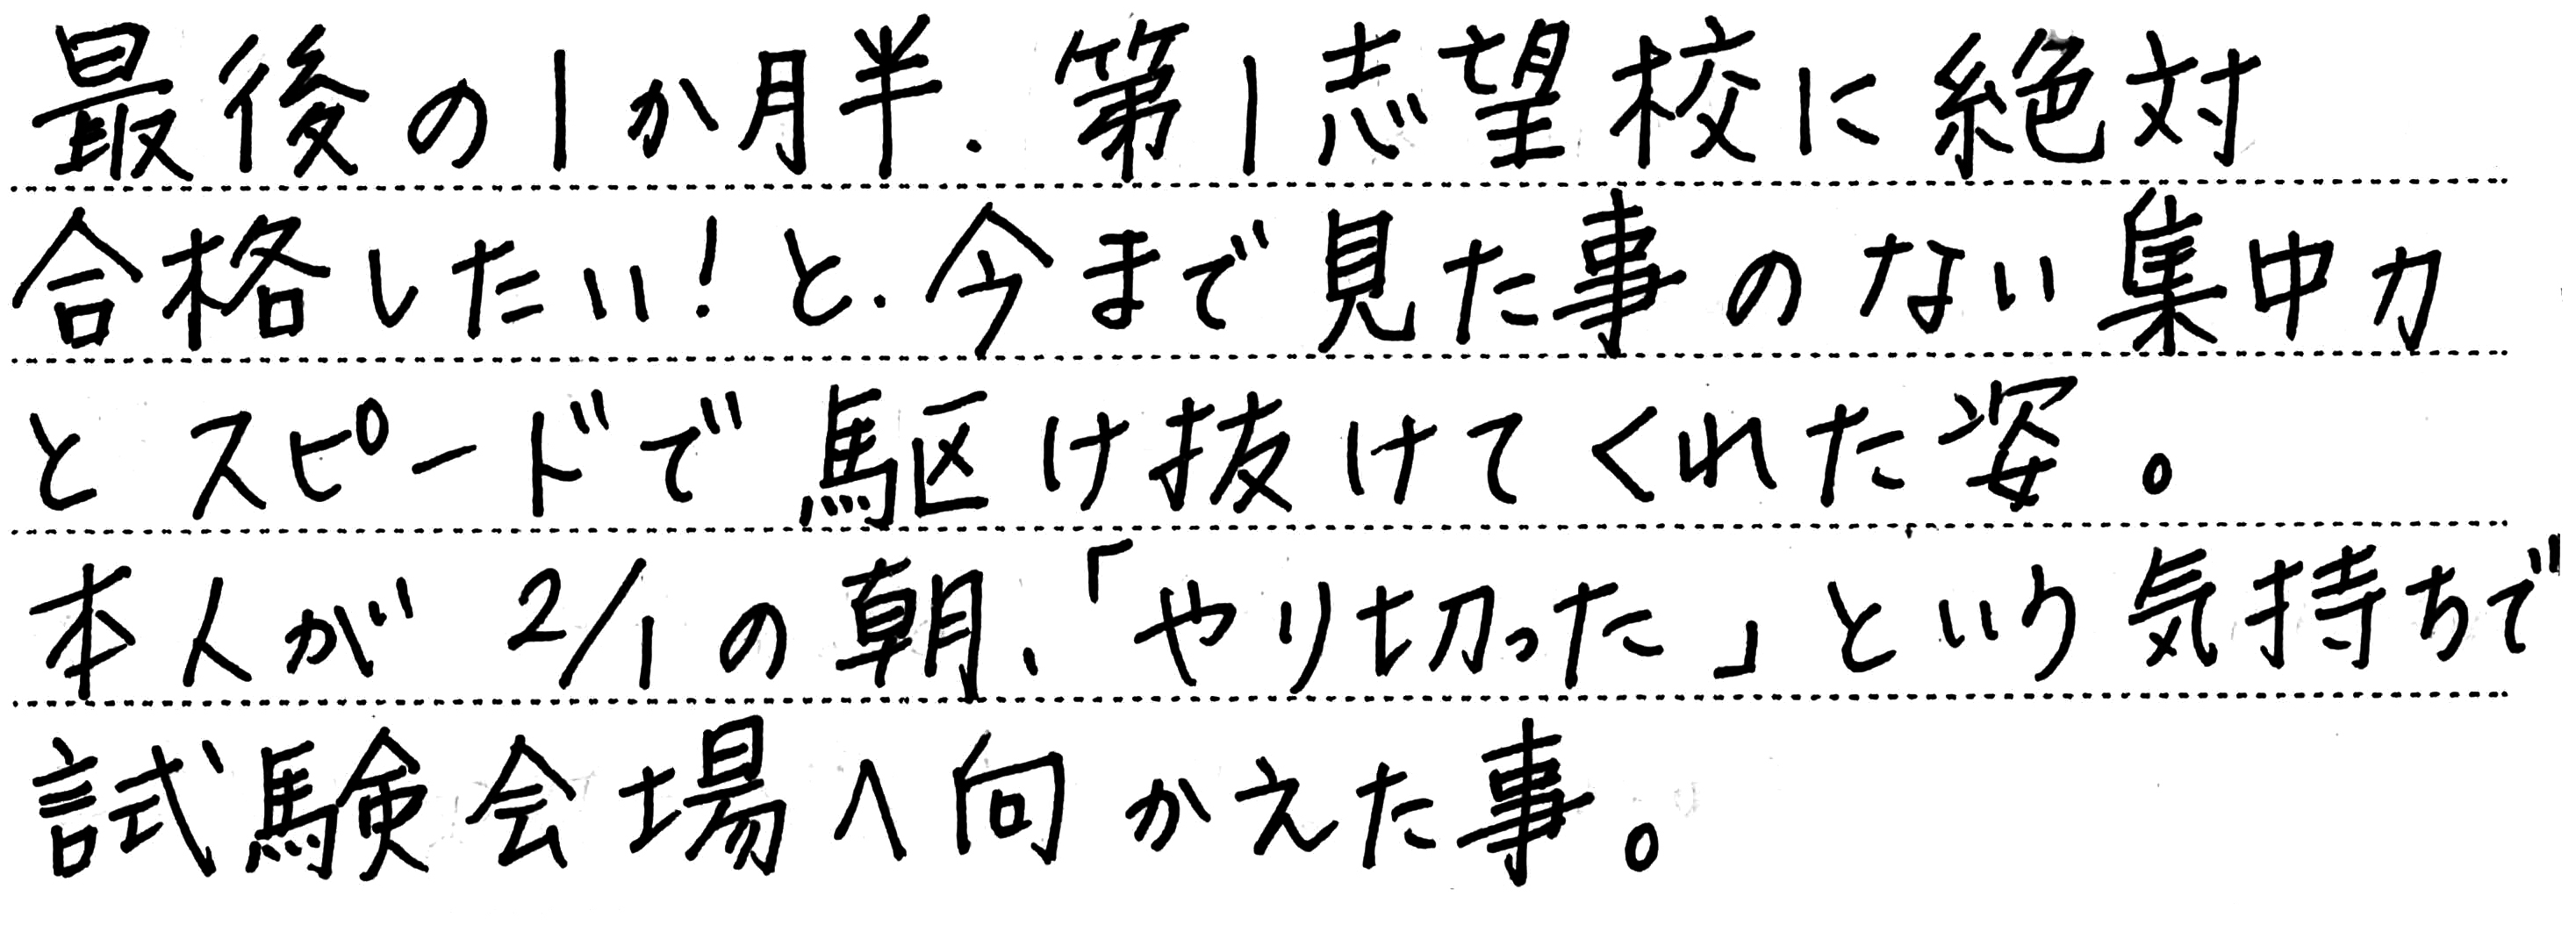 最後の1か月半、第1志望校に絶対
合格したい!と、今まで見た事のない集中力
とスピードで駆け抜けてくれた姿。
本人が 2/1の朝、「やり切った」という気持ちで
試験会場へ向かえた事。